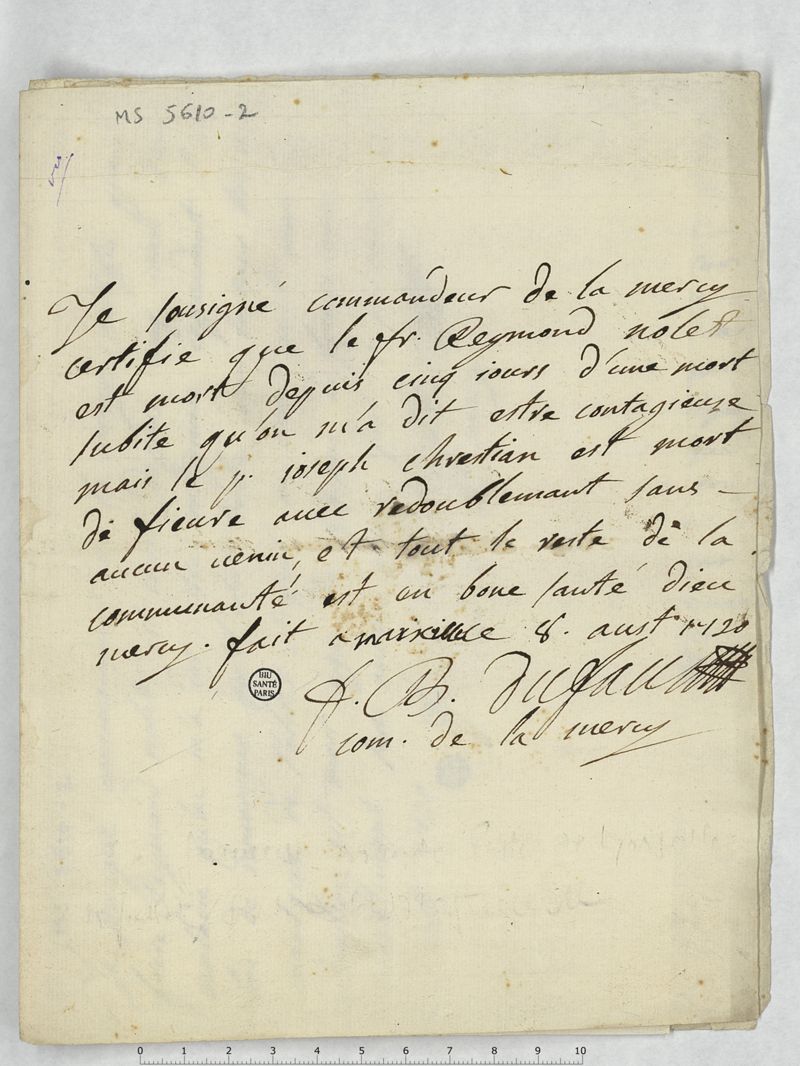 MS 5610-2
Je sousigné commandeur de la mercy
certifie que le fr. Reymond nolet
est mort depuis cinq iours d'une mort
subite qu'on m'a dit estre contagieuse
mais le p. ioseph chrestian est mort
de fieure auec redoublemant sans -
aucun uenin, et tout le reste de la
communauté est en bone santé dieu
mercy. fait a marseille 8. aust 1720
f. B. dufau
com. de la mercy
BIU
SANTÉ
PARIS
0 1 2 3 4 5 6 7 8 9 10